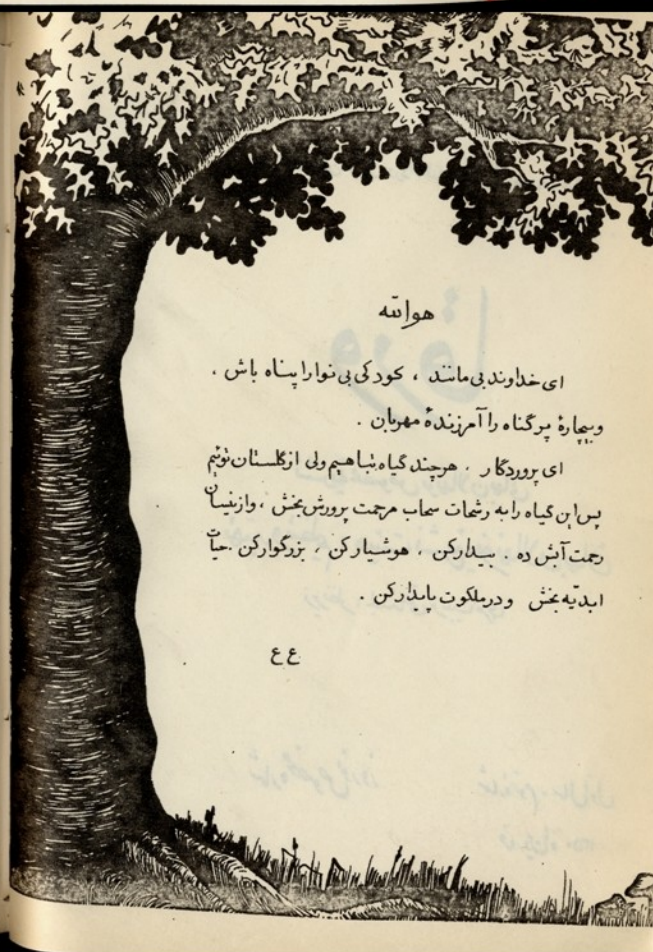 هوالله
ای خداوند بی مانند ، کودکی بی نوا را پناه باش ،
وبیچارهٔ پرگناه را آمرزندهٔ مهربان .
ای پروردگار ، هرچند گیاه تباهیم ولی ازگلستان توئیم
پس این گیاه را به رشحات سحاب مرحمت پرورش بخش ، وازنیسان
رحمت آبش ده ، بیدارکن ، هوشیارکن ، بزرگوارکن . حیات
ابدیّه بخش و درملکوت پایدارکن .
ع ع